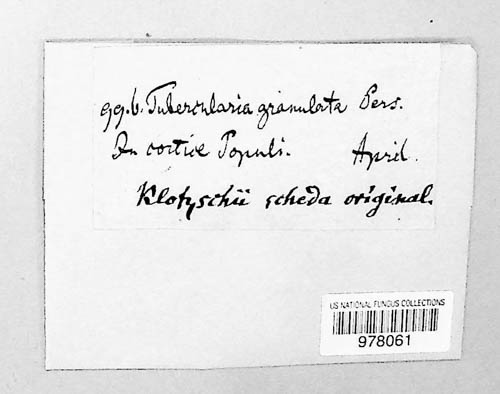 99.b. Tubercularia granulata Pers.
In cortice Populi. April.
Klotzschii scheda original.
US NATIONAL FUNGUS COLLECTIONS
978061